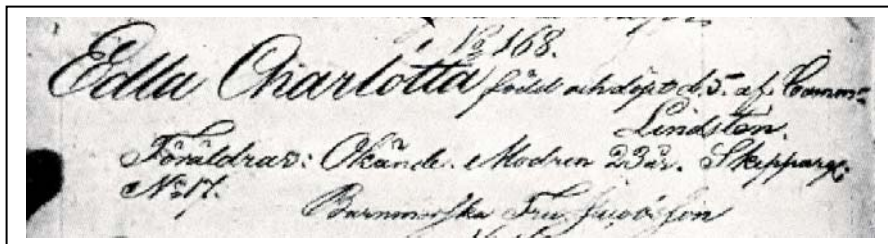 No 168.
Edla Charlotta född och döpt d. 5. af Comm=
Lindsten.
Föräldrar: Okände. Modren 23 år. Skipparg:
No 17.
Barnmorska Fru Jacobsson